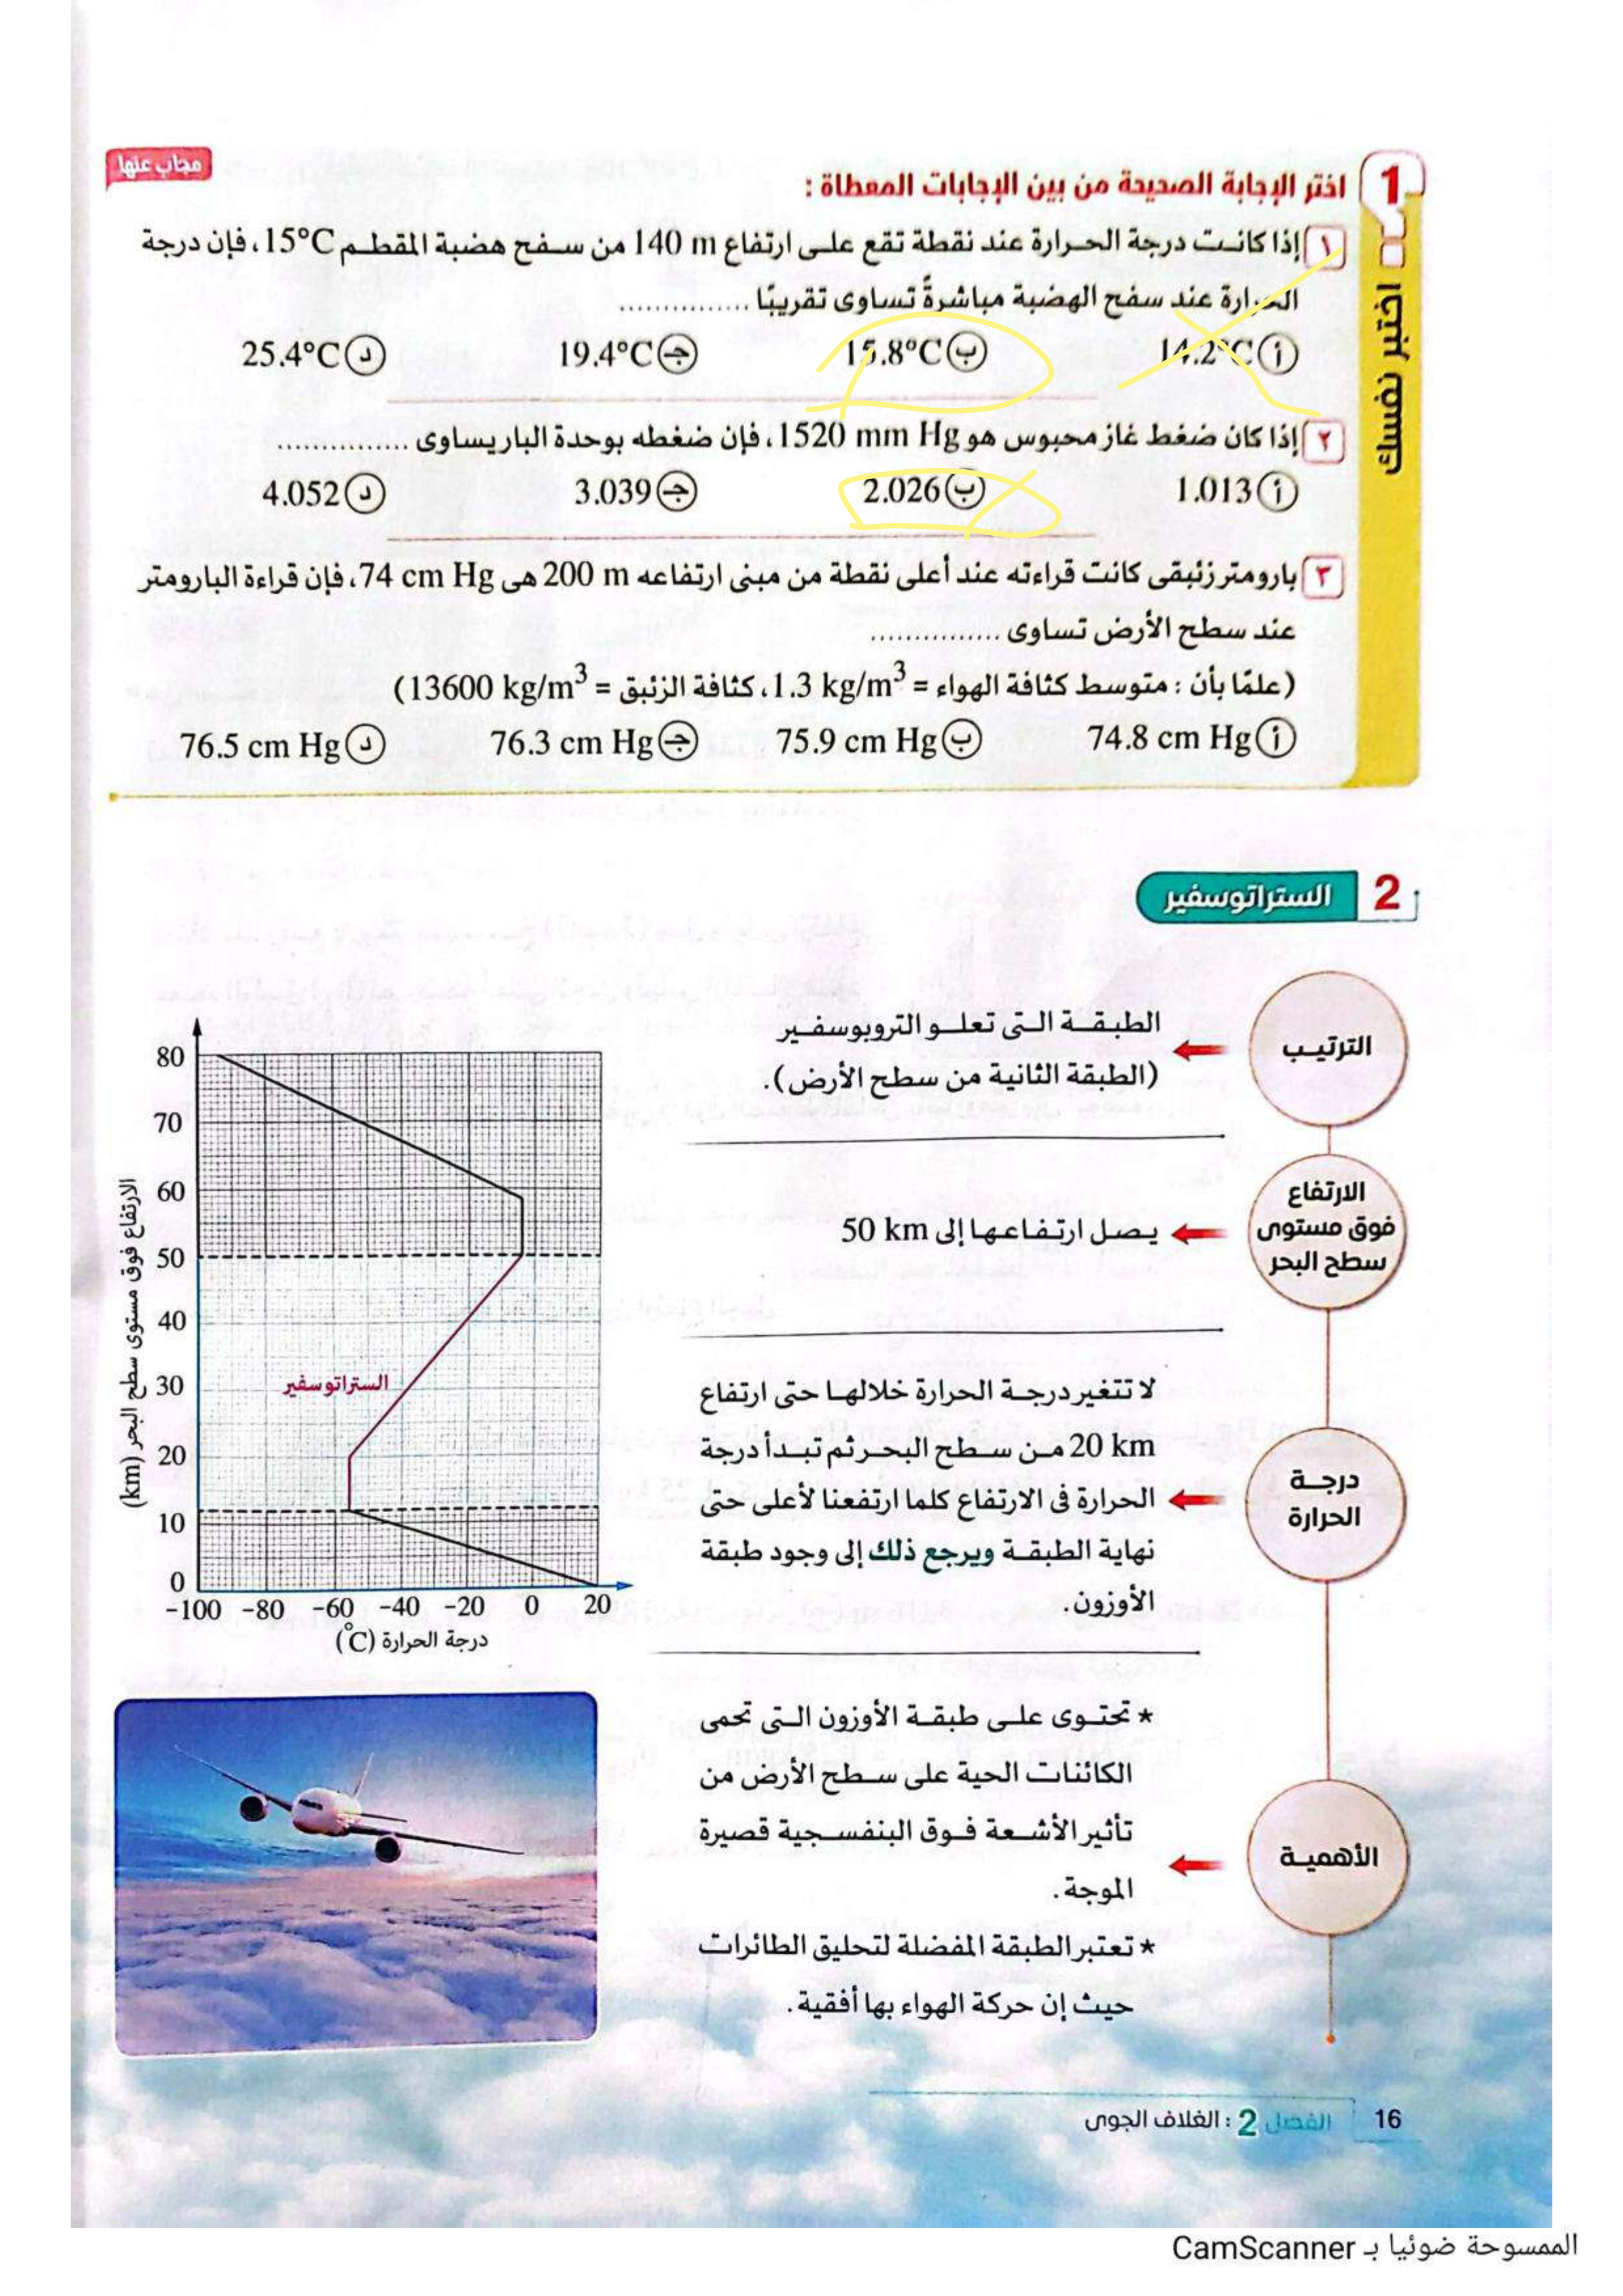 مجاب عنها
1 اختبر نفسك
اختر الإجابة الصحيحة من بين الإجابات المعطاة :
١ إذا كانت درجة الحرارة عند نقطة تقع على ارتفاع 140 m من سفح هضبة المقطم 15°C، فإن درجة
الحرارة عند سفح الهضبة مباشرةً تساوى تقريبًا ...............
أ 14.2°C ب 15.8°C ج 19.4°C د 25.4°C
٢ إذا كان ضغط غاز محبوس هو 1520 mm Hg، فإن ضغطه بوحدة البار يساوى ...............
أ 1.013 ب 2.026 ج 3.039 د 4.052
٣ بارومتر زئبقى كانت قراءته عند أعلى نقطة من مبنى ارتفاعه 200 m هى 74 cm Hg، فإن قراءة البارومتر
عند سطح الأرض تساوى ...............
(علمًا بأن : متوسط كثافة الهواء = 1.3 kg/m³، كثافة الزئبق = 13600 kg/m³)
أ 74.8 cm Hg ب 75.9 cm Hg ج 76.3 cm Hg د 76.5 cm Hg
2 الستراتوسفير
الترتيب
الطبقة التى تعلو التروبوسفير
(الطبقة الثانية من سطح الأرض).
الارتفاع
فوق مستوى
سطح البحر
يصل ارتفاعها إلى 50 km
درجة
الحرارة
لا تتغير درجة الحرارة خلالها حتى ارتفاع
20 km من سطح البحر ثم تبدأ درجة
الحرارة فى الارتفاع كلما ارتفعنا لأعلى حتى
نهاية الطبقة ويرجع ذلك إلى وجود طبقة
الأوزون.
الأهمية
* تحتوى على طبقة الأوزون التى تحمى
الكائنات الحية على سطح الأرض من
تأثير الأشعة فوق البنفسجية قصيرة
الموجة.
* تعتبر الطبقة المفضلة لتحليق الطائرات
حيث إن حركة الهواء بها أفقية.
الارتفاع فوق مستوى سطح البحر (km)
80
70
60
50
40
30
20
10
0
الستراتوسفير
-100 -80 -60 -40 -20 0 20
درجة الحرارة (°C)
16 الفصل 2 : الغلاف الجوى
الممسوحة ضوئيا بـ CamScanner